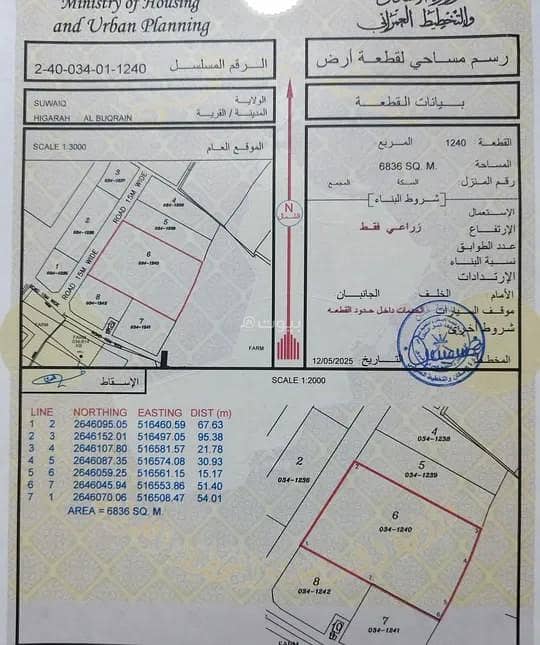 Ministry of Housing
and Urban Planning
والتخطيط العمراني
2-40-034-01-1240 الرقم المسلسل
رسم مساحي لقطعة أرض
SUWAIQ الولاية
HIGARAH AL BUQRAIN المدينة / القرية
بيانات القطعة
SCALE 1:3000 الموقع العام
القطعة 1240 المربع
المساحة 6836 SQ. M.
رقم المنزل السكة المجمع
شروط البناء
الإستعمال
زراعي فقط
الإرتفاع
عدد الطوابق
نسبة البناء
الإرتدادات
الأمام الخلف الجانبان
موقف السيارات الخدمات داخل حدود القطعه
شروط أخرى
المخطط
التاريخ 12/05/2025
N
الشمال
3
034-1237
4
034-1238
2
034-1236
5
034-1239
6
034-1240
1
034-1235
8
034-1242
7
034-1241
ROAD 15M WIDE
ROAD 15M WIDE
FARM
FARM
FARM
بيوت
الإسقاط
SCALE 1:2000
LINE NORTHING EASTING DIST (m)
1 2 2646095.05 516460.59 67.63
2 3 2646152.01 516497.05 95.38
3 4 2646107.80 516581.57 21.78
4 5 2646087.35 516574.08 30.93
5 6 2646059.25 516561.15 15.17
6 7 2646045.94 516553.86 51.40
7 1 2646070.06 516508.47 54.01
AREA = 6836 SQ. M.
4
034-1238
2
034-1236
5
034-1239
6
034-1240
8
034-1242
7
034-1241
FARM